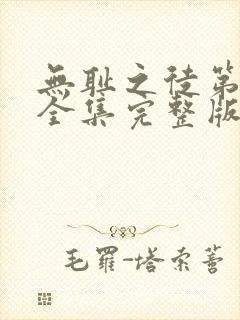 無耻之徒第
全集完整版
毛羅-塔索薈